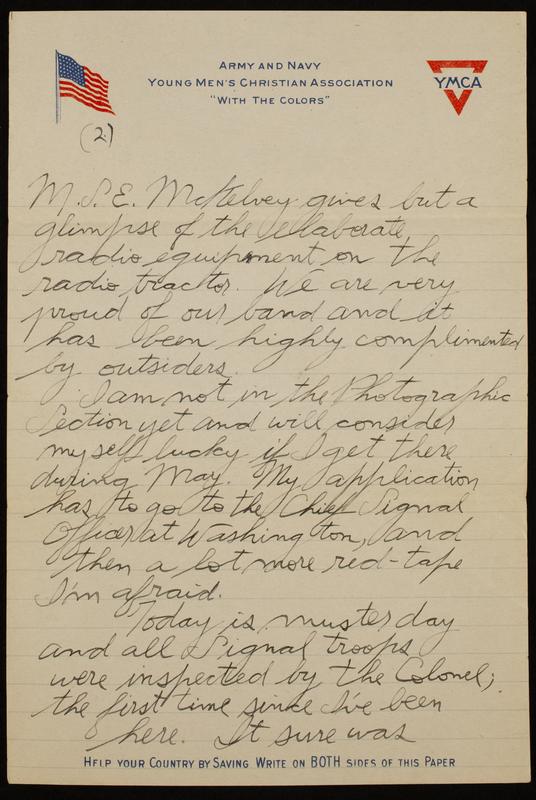 ARMY AND NAVY
YOUNG MEN'S CHRISTIAN ASSOCIATION
"WITH THE COLORS"
YMCA
(2)
M.S.E. McKelvey gives but a
glimpse of the elaborate
radio equipment on the
radio tractor. We are very
proud of our band and it
has been highly complimented
by outsiders.
I am not in the Photographic
Section yet and will consider
myself lucky if I get there
during May. My application
has to go to the Chief Signal
Officer at Washington, and
then a lot more red-tape
I'm afraid.
Today is muster day
and all Signal troops
were inspected by the Colonel;
the first time since I've been
here. It sure was
HELP YOUR COUNTRY BY SAVING WRITE ON BOTH SIDES OF THIS PAPER